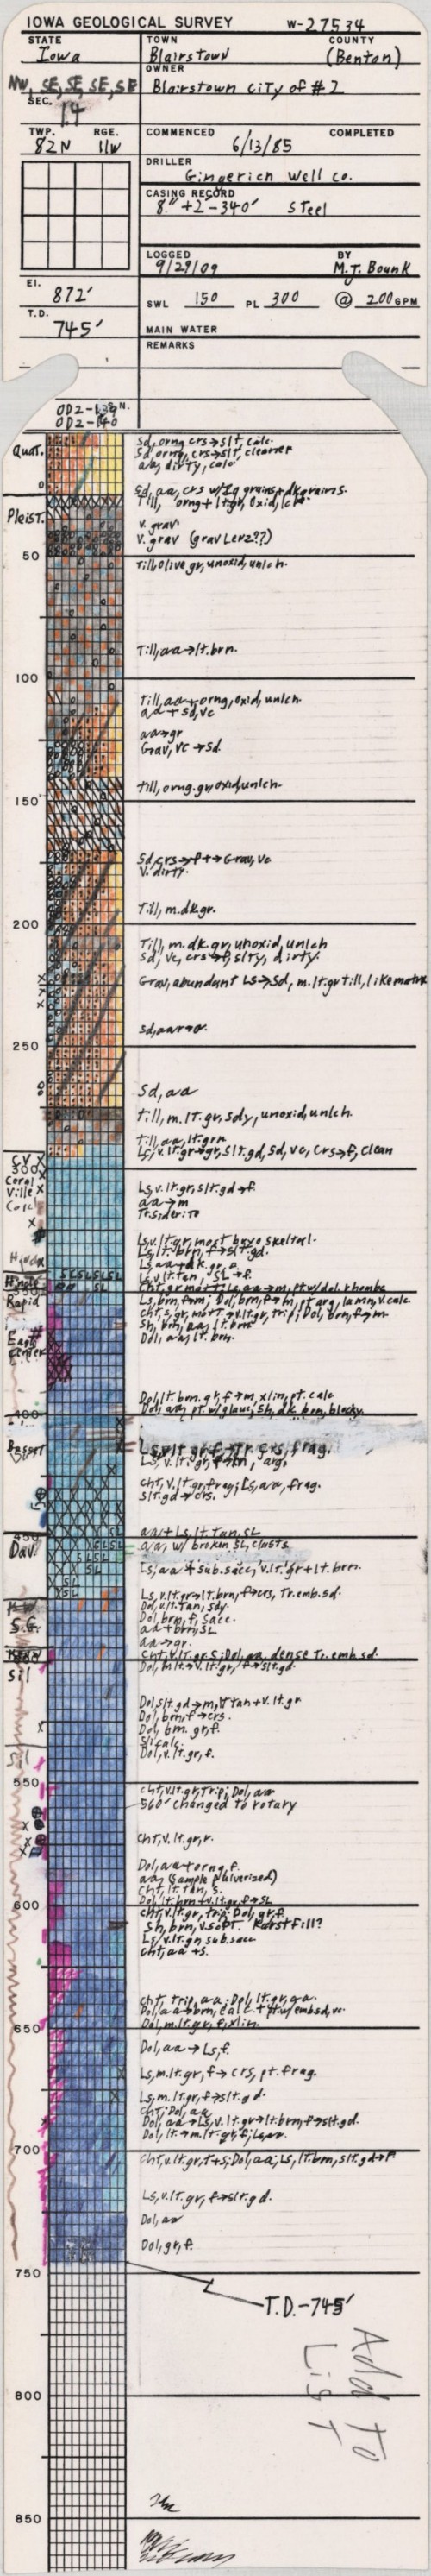 IOWA GEOLOGICAL SURVEY W-27534
STATE
Iowa
TOWN
Blairstown
COUNTY
(Benton)
NW, SE, SE, SE, SE
OWNER
Blairstown City of #2
SEC.
14
TWP. RGE.
82N 11W
COMMENCED COMPLETED
6/13/85
DRILLER
Gingerich Well Co.
CASING RECORD
8" +2'-340' Steel
LOGGED BY
9/29/09 M.J. Bounk
El.
872'
SWL 150 PL 300 @ 200 GPM
T.D.
745'
MAIN WATER
REMARKS
OD2-140
Quat.
Sd, orng crs→slt calc.
Sd, orng, crs→slt, cleaner
aa, dirty, calc
Sd, aa, crs w/lg grains+dk grains.
Till, orng+lt.gr, oxid, lch
Pleist.
v. grav.
v. grav (grav Lerz??)
50
Till, olive gr, unoxid, unlch.
Till, aa→lt.brn.
100
Till, aa+orng, oxid, unlch.
aa + sd, vc
aa→gr
Grav, vc→sd.
till, orng.gr, oxid, unlch.
150
Sd, crs→f+→Grav, vc
v. dirty.
Till, m.dk.gr.
200
Till, m.dk.gr, unoxid, unlch
Sd, vc, crs→f, slty, dirty.
Grav, abundant Ls→Sd, m.lt.gr till, like matrix
Sd, aa
250
Sd, aa
Till, m.lt.gr, sdy, unoxid, unlch.
Till, aa, lt.grn
Ls, v.lt.gr→gr, slt.gd, Sd, vc, crs→f, clean
C.V
300
Coral
Ville
Calc
Ls, v.lt.gr, slt.gd→f
aa→m
Tr.siderite
Ls, v.lt.gr, most bryo skeltal.
Ls, lt.brn, f→slt.gd.
Ls, aa+dk.gr, f.
Ls, v.lt.tan SL→f.
Hinkle
Rapid
Cht, gr mott; Ls, aa→m, pt w/dol. rhombs
Ls, brn, f→m; Dol, brn, f→m, pt arg, lamn, v.calc.
Cht, s, gr, mott.→v.lt.gr, trip; Dol, brn, f→m.
Sh, brn, aa, lt.brn
Dol, aa, lt.brn.
Eagle
Center
Dol, lt.brn.gr, f→m, xlin, pt. calc
Dol, aa, pt. w/glauc, sh, dk brn, blocky
400
Basset
Ls, v.lt.gr, f→tr. crs, frag.
Ls, v.lt.gr, f→m, arg.
cht, v.lt.gr, frag; Ls, aa, frag.
slt.gd→crs.
450
Dav.
aa+Ls, lt.tan, SL
aa, w/ broken SL, clasts
Ls, aa+sub.sacc, v.lt.gr+lt brn.
Ls, v.lt.gr→lt.brn, f→crs, Tr.emb.sd.
Dol, v.lt.tan, sdy
S.G.
Dol, brn, f, sacc.
aa+brn, SL
aa→gr.
Cht, v.lt.gr.S; Dol, aa, dense Tr. emb.sd.
Sil
Dol, m.lt→v.lt.gr, f→slt.gd.
Dol, slt.gd→m, lt tan+v.lt.gr
Dol, brn, f→crs.
Dol, brn.gr, f.
Sl.calc.
Dol, v.lt.gr, f.
Sil
550
cht, v.lt.gr, trip; Dol, aa
560' changed to rotary
Cht, v.lt.gr, r.
Dol, aa+orng, f.
aa (sample pulverized)
cht, lt.tan, s.
Dol, lt.brn+v.lt.gr, f→SL
600
cht, v.lt.gr, trip; Dol, gr, f
Sh, brn, v.soft. Karst fill?
Ls, v.lt.gn sub.sacc
cht, aa+s.
cht, trip, aa; Dol, lt.gr, aa.
Dol, aa→brn, calc+pt w/emb sd, vc.
Dol, m.lt.gr, f, xlin.
650
Dol, aa→Ls, f.
Ls, m.lt.gr, f→crs, pt. frag.
Ls, m.lt.gr, f→slt.gd.
cht; Dol, aa
Dol, aa→Ls, v.lt.gr→lt.brn, f→slt.gd.
Dol, lt→m.lt.gr, f; Ls, aa.
700
cht, v.lt.gr, T+S; Dol, aa; Ls, lt.brn, slt.gd→f
Ls, v.lt.gr, f→slt.gd.
Dol, aa
Dol, gr, f.
750
T.D.-745'
Add To
List
800
850